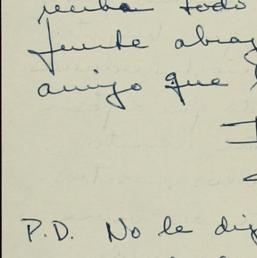 reciba todo
fuerte abraz
amigo que
P.D. No le dig